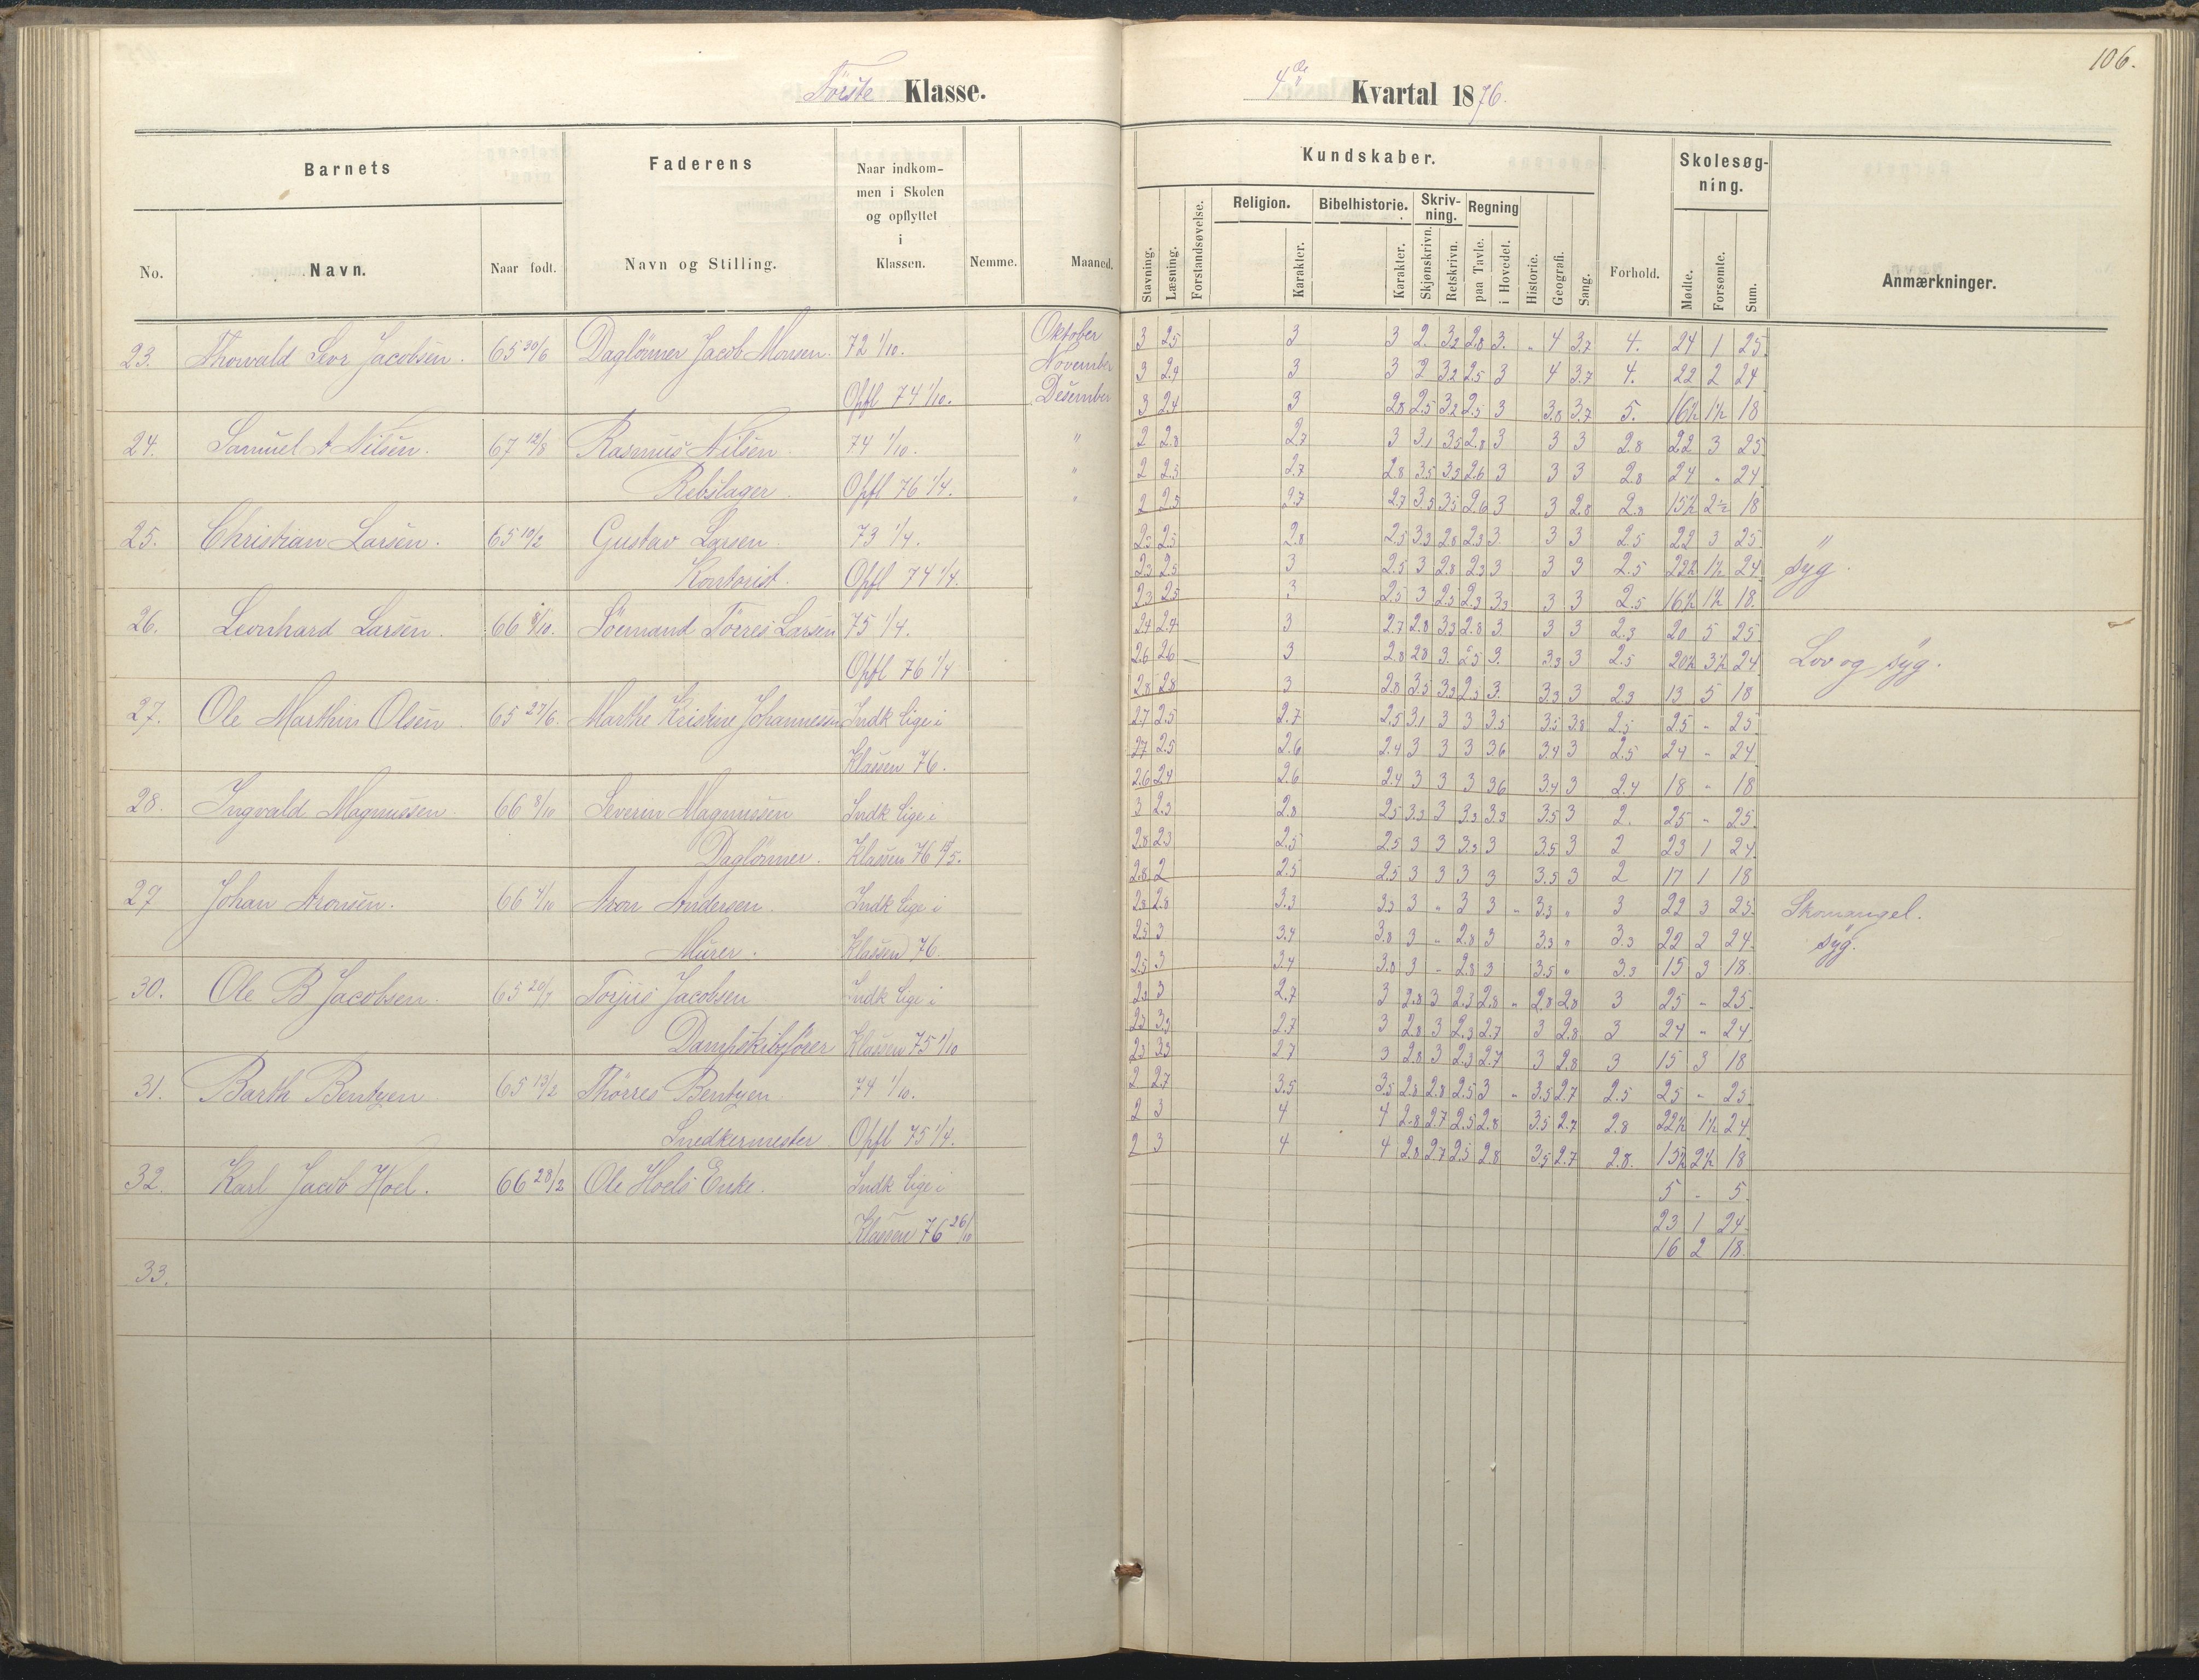 106.
Förste Klasse.
4de Kvartal 1876.
Barnets
Faderens
Naar indkommen i Skolen og opflyttet i Klassen.
Nemme.
Maaned.
No.
Navn.
Naar født.
Navn og Stilling.
Kundskaber.
Skolesøgning.
Stavning. Læsning. Forstandsøvelse. Religion. Karakter. Bibelhistorie. Karakter. Skrivning. Skjønskrivn. Retskrivn. Regning paa Tavle. i Hovedet. Historie. Geografi. Sang. Forhold. Mødte. Forsømte. Sum. Anmærkninger.
23. Thorvald Jacobsen. 65 30/6 Daglönner Jacob Monsen. 72 1/10. Oktober 3 2.5 3 3 2. 3.2 2.8 3. " 4 3.7 4. 24 1 25.
November 3 2.4 3 3 2 3.2 2.5 3 4 3.7 4. 22 2 24
Opfl 74 1/10. Desember 3 2.4 3 2.8 2.5 3.2 2.5 3 3.8 3.7 5. 16½ 1½ 18
24. Samuel A Nilsen. 67 12/8 Rasmus Nilsen 74 1/10. " 2 2.8 2.7 3 3.1 3.5 2.8 3 3 3 2.8 22 3 25.
Rebslager. Opfl 76 1/4. " 2 2.5 2.7 2.8 3.5 3.3 2.6 3 3 3 2.8 24 " 24
" 2 2.5 2.7 2.7 3.5 3.5 2.6 3 3 2.8 2.8 15½ 2½ 18
25. Christian Larsen. 65 19/2 Gustav Larsen 73 1/4. 2.5 2.5 2.8 2.5 3.3 2.8 2.3 3. 3 3 2.5 22 3 25. "
Kontorist. Opfl 74 1/4. 2.3 2.5 3 2.5 3 2.8 2.3 3 3 3 2.5 22½ 1½ 24 syg.
2.3 2.5 3 2.5 3 2.5 2.3 3.3 3 3 2.5 16½ 1½ 18.
26. Leonhard Larsen. 66 8/10. Sömand Törres Larsen 75 1/4. 2.4 2.4 3 2.7 2.8 3.3 2.8 3. 3 3 2.3 20 5 25
Opfl 76 1/4 2.6 2.6 3 2.8 2.8 3. 2.5 3. 3.3 3 2.5 20½ 3½ 24 Lov og syg.
2.8 2.8 3 2.8 3.5 3.3 2.3 3. 3.3 3 2.3 13 5 18
27. Ole Marthin Olsen. 65 27/6. Marthe Kristine Johannesen Indk lige i 2.7 2.5 2.7 2.5 3.1 3 3 3.5 3.5 3.8 2.5 25 - 25
Klassen 76. 2.7 2.5 2.6 2.4 3 3 3 3.6 3.4 3 2.5 24 - 24
2.6 2.4 2.6 2.4 3 3 3 3.6 3.4 3 2.4 18 " 18
28. Ingvald Magnussen. 66 8/10 Severin Magnussen Indk lige i 3 2.3 2.8 2.5 3.3 3 3.3 3.3 3.5 3 2. 25 - 25.
Daglönner. Klassen 76 15/5. 2.8 2.3 2.5 2.5 3 3 3.3 3 3.5 3 2 23 1 24.
2.8 2 2.5 2.5 3 3 3 3 3.5 3 2 17 1 18
29 Johan Aronsen. 66 4/10 Aron Andersen. Indk lige i 2.8 2.8 3.3 3.3 3 " 3 3 " 3.3 " 3 22 3 25. Skomangel.
Murer. Klassen 76. 2.5 3 3.4 3.8 3 " 2.8 3 3.3 " 3.3 22 2 24. syg.
2.5 3 3.4 3.8 3 - 2.8 3 3.5 " 3.3 15 3 18.
30. Ole B Jacobsen. 65 20/7 Torjus Jacobsen Indk lige i 2.3 3 2.7 3 2.8 3 2.3 2.8 " 2.8 2.8 3 25 - 25.
Dampskibsförer Klassen 75 1/10 2.3 3.3 2.7 3 2.8 3 2.3 2.7 3 2.8 3 24 " 24
2.3 3.3 2.7 3 2.8 3 2.3 2.7 3 2.8 3 15 3 18
31. Barth Bentzen. 65 13/2 Thörres Bentzen. 74 1/10. 2 2.7 3.5 3.5 2.8 2.8 2.5 3 " 3.5 2.7 2.5 25 - 25
Snedkermester Opfl 75 1/4. 2 3 4 4 2.8 2.7 2.5 2.8 3.5 2.7 2.8 22½ 1½ 24
2 3 4 4 2.8 2.7 2.5 2.8 3.5 2.7 2.8. 15½ 2½ 18
32. Karl Jacob Hoel. 66 28/2 Ole Hoels Enke. Indk lige i 5 - 5.
Klassen 76 26/10 23 1 24.
16 2 18.
33.